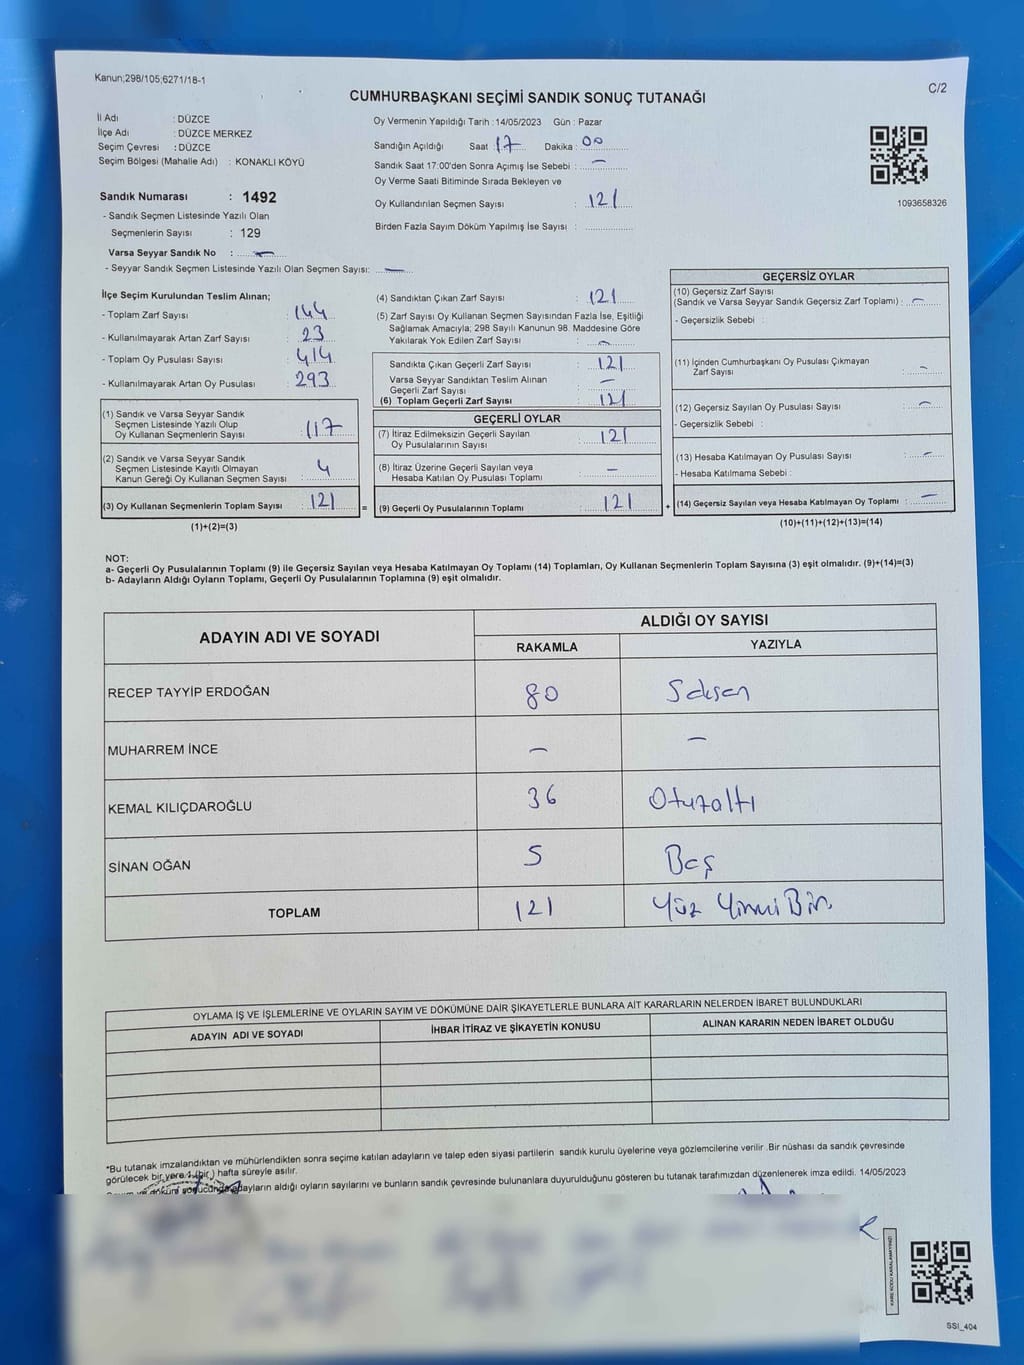 Kanun;298/105;6271/18-1
C/2
CUMHURBAŞKANI SEÇİMİ SANDIK SONUÇ TUTANAĞI
İl Adı : DÜZCE
İlçe Adı : DÜZCE MERKEZ
Seçim Çevresi : DÜZCE
Seçim Bölgesi (Mahalle Adı) : KONAKLI KÖYÜ
Sandık Numarası : 1492
- Sandık Seçmen Listesinde Yazılı Olan
Seçmenlerin Sayısı : 129
Varsa Seyyar Sandık No : —
- Seyyar Sandık Seçmen Listesinde Yazılı Olan Seçmen Sayısı: —
Oy Vermenin Yapıldığı Tarih : 14/05/2023 Gün : Pazar
Sandığın Açıldığı Saat 17 Dakika : 00
Sandık Saat 17:00'den Sonra Açımış İse Sebebi : —
Oy Verme Saati Bitiminde Sırada Bekleyen ve
Oy Kullandırılan Seçmen Sayısı : 121
Birden Fazla Sayım Döküm Yapılmış İse Sayısı :
1093658326
İlçe Seçim Kurulundan Teslim Alınan;
- Toplam Zarf Sayısı : 144
- Kullanılmayarak Artan Zarf Sayısı : 23
- Toplam Oy Pusulası Sayısı : 414
- Kullanılmayarak Artan Oy Pusulası : 293
(1) Sandık ve Varsa Seyyar Sandık
Seçmen Listesinde Yazılı Olup
Oy Kullanan Seçmenlerin Sayısı : 117
(2) Sandık ve Varsa Seyyar Sandık
Seçmen Listesinde Kayıtlı Olmayan
Kanun Gereği Oy Kullanan Seçmen Sayısı : 4
(3) Oy Kullanan Seçmenlerin Toplam Sayısı : 121
(1)+(2)=(3)
(4) Sandıktan Çıkan Zarf Sayısı : 121
(5) Zarf Sayısı Oy Kullanan Seçmen Sayısından Fazla İse, Eşitliği
Sağlamak Amacıyla; 298 Sayılı Kanunun 98. Maddesine Göre
Yakılarak Yok Edilen Zarf Sayısı : —
Sandıkta Çıkan Geçerli Zarf Sayısı : 121
Varsa Seyyar Sandıktan Teslim Alınan
Geçerli Zarf Sayısı : —
(6) Toplam Geçerli Zarf Sayısı : 121
=
GEÇERLİ OYLAR
(7) İtiraz Edilmeksizin Geçerli Sayılan
Oy Pusulalarının Sayısı : 121
(8) İtiraz Üzerine Geçerli Sayılan veya
Hesaba Katılan Oy Pusulası Toplamı : —
(9) Geçerli Oy Pusulalarının Toplamı : 121
+
GEÇERSİZ OYLAR
(10) Geçersiz Zarf Sayısı
(Sandık ve Varsa Seyyar Sandık Geçersiz Zarf Toplamı) : —
- Geçersizlik Sebebi :
(11) İçinden Cumhurbaşkanı Oy Pusulası Çıkmayan
Zarf Sayısı : —
(12) Geçersiz Sayılan Oy Pusulası Sayısı : —
- Geçersizlik Sebebi :
(13) Hesaba Katılmayan Oy Pusulası Sayısı : —
- Hesaba Katılmama Sebebi :
(14) Geçersiz Sayılan veya Hesaba Katılmayan Oy Toplamı : —
(10)+(11)+(12)+(13)=(14)
NOT:
a- Geçerli Oy Pusulalarının Toplamı (9) ile Geçersiz Sayılan veya Hesaba Katılmayan Oy Toplamı (14) Toplamları, Oy Kullanan Seçmenlerin Toplam Sayısına (3) eşit olmalıdır. (9)+(14)=(3)
b- Adayların Aldığı Oyların Toplamı, Geçerli Oy Pusulalarının Toplamına (9) eşit olmalıdır.
ADAYIN ADI VE SOYADI
ALDIĞI OY SAYISI
RAKAMLA YAZIYLA
RECEP TAYYİP ERDOĞAN 80 Seksen
MUHARREM İNCE — —
KEMAL KILIÇDAROĞLU 36 Otuzaltı
SİNAN OĞAN 5 Beş
TOPLAM 121 Yüz Yirmi Bir
OYLAMA İŞ VE İŞLEMLERİNE VE OYLARIN SAYIM VE DÖKÜMÜNE DAİR ŞİKAYETLERLE BUNLARA AİT KARARLARIN NELERDEN İBARET BULUNDUKLARI
ADAYIN ADI VE SOYADI İHBAR İTİRAZ VE ŞİKAYETİN KONUSU ALINAN KARARIN NEDEN İBARET OLDUĞU
*Bu tutanak imzalandıktan ve mühürlendikten sonra seçime katılan adayların ve talep eden siyasi partilerin sandık kurulu üyelerine veya gözlemcilerine verilir. Bir nüshası da sandık çevresinde
görülecek bir yere 1 (bir ) hafta süreyle asılır.
Sayım ve döküm sonucunda adayların aldığı oyların sayılarını ve bunların sandık çevresinde bulunanlara duyurulduğunu gösteren bu tutanak tarafımızdan düzenlenerek imza edildi. 14/05/2023
KARE KODU KARALAMAYINIZ!
SSI_404